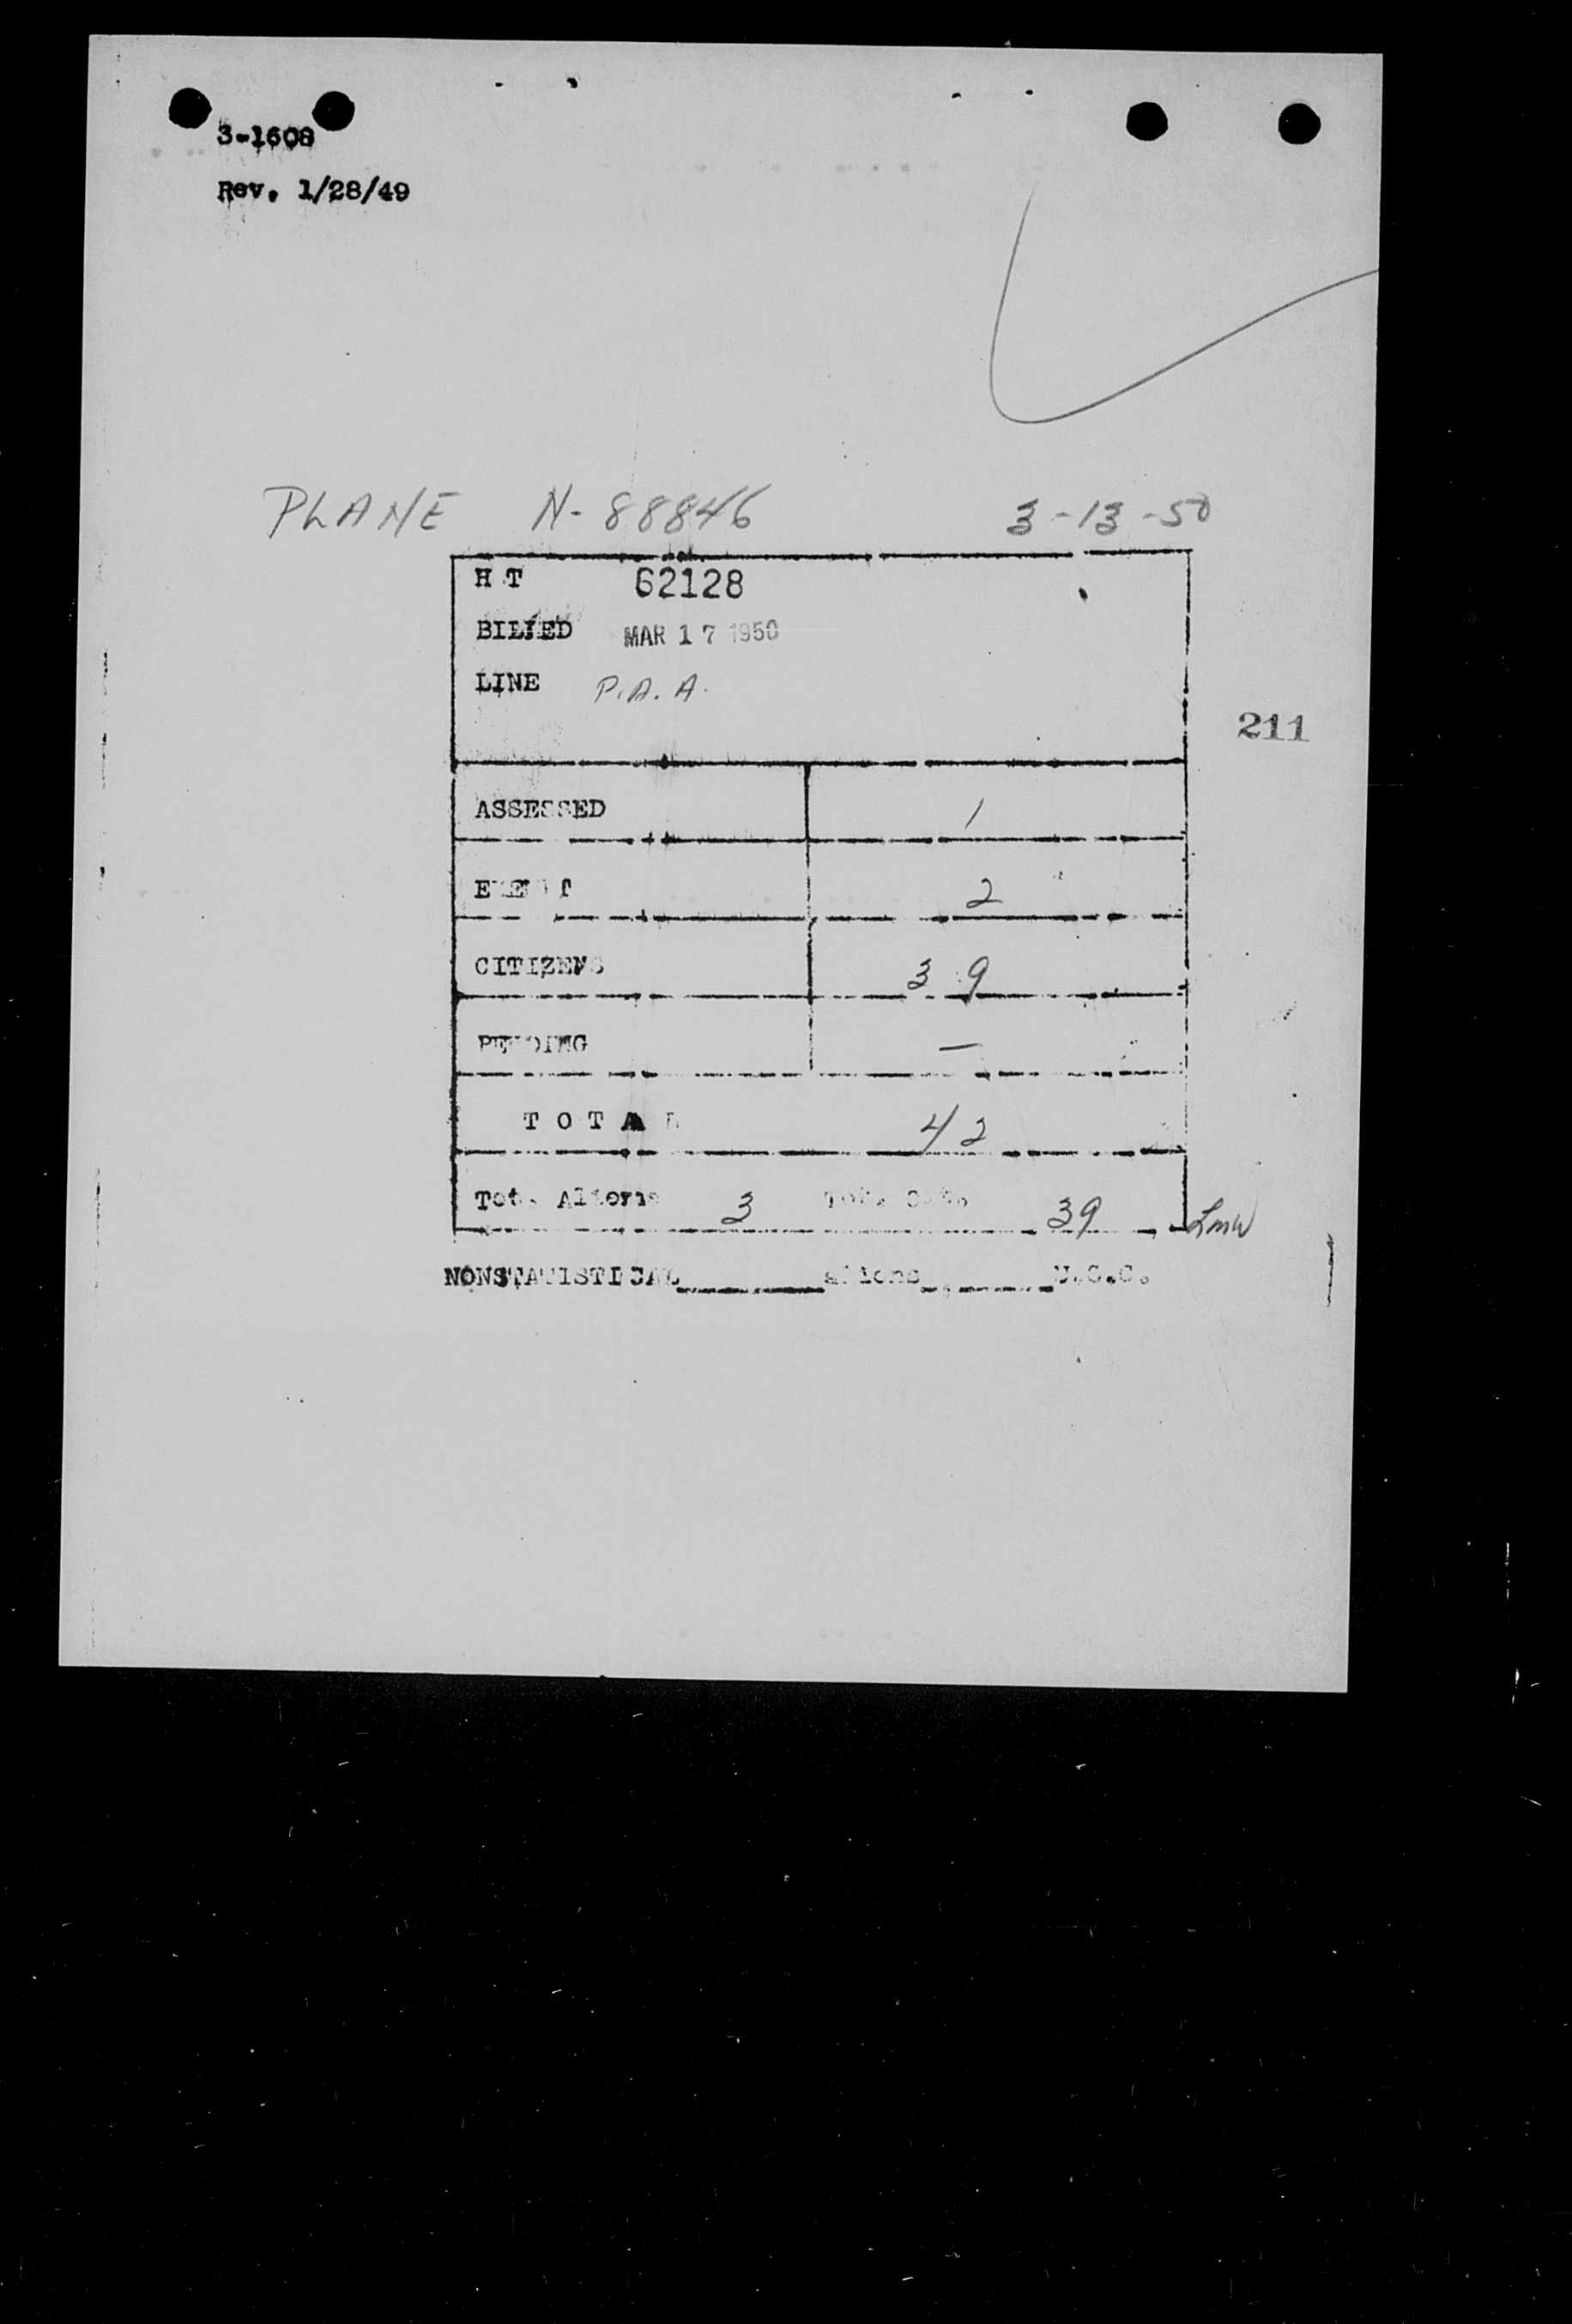 3-1608
Rev. 1/28/49
PLANE N-88846 3-13-50
H T 62128
BILLED MAR 17 1950
LINE P.A.A.
211
ASSESSED 1
EXEMPT 2
CITIZENS 39
PENDING —
TOTAL 42
Tot. Aliens 3 Tot. 39
Lmw
NONSTATISTICAL aliens U.S.C.